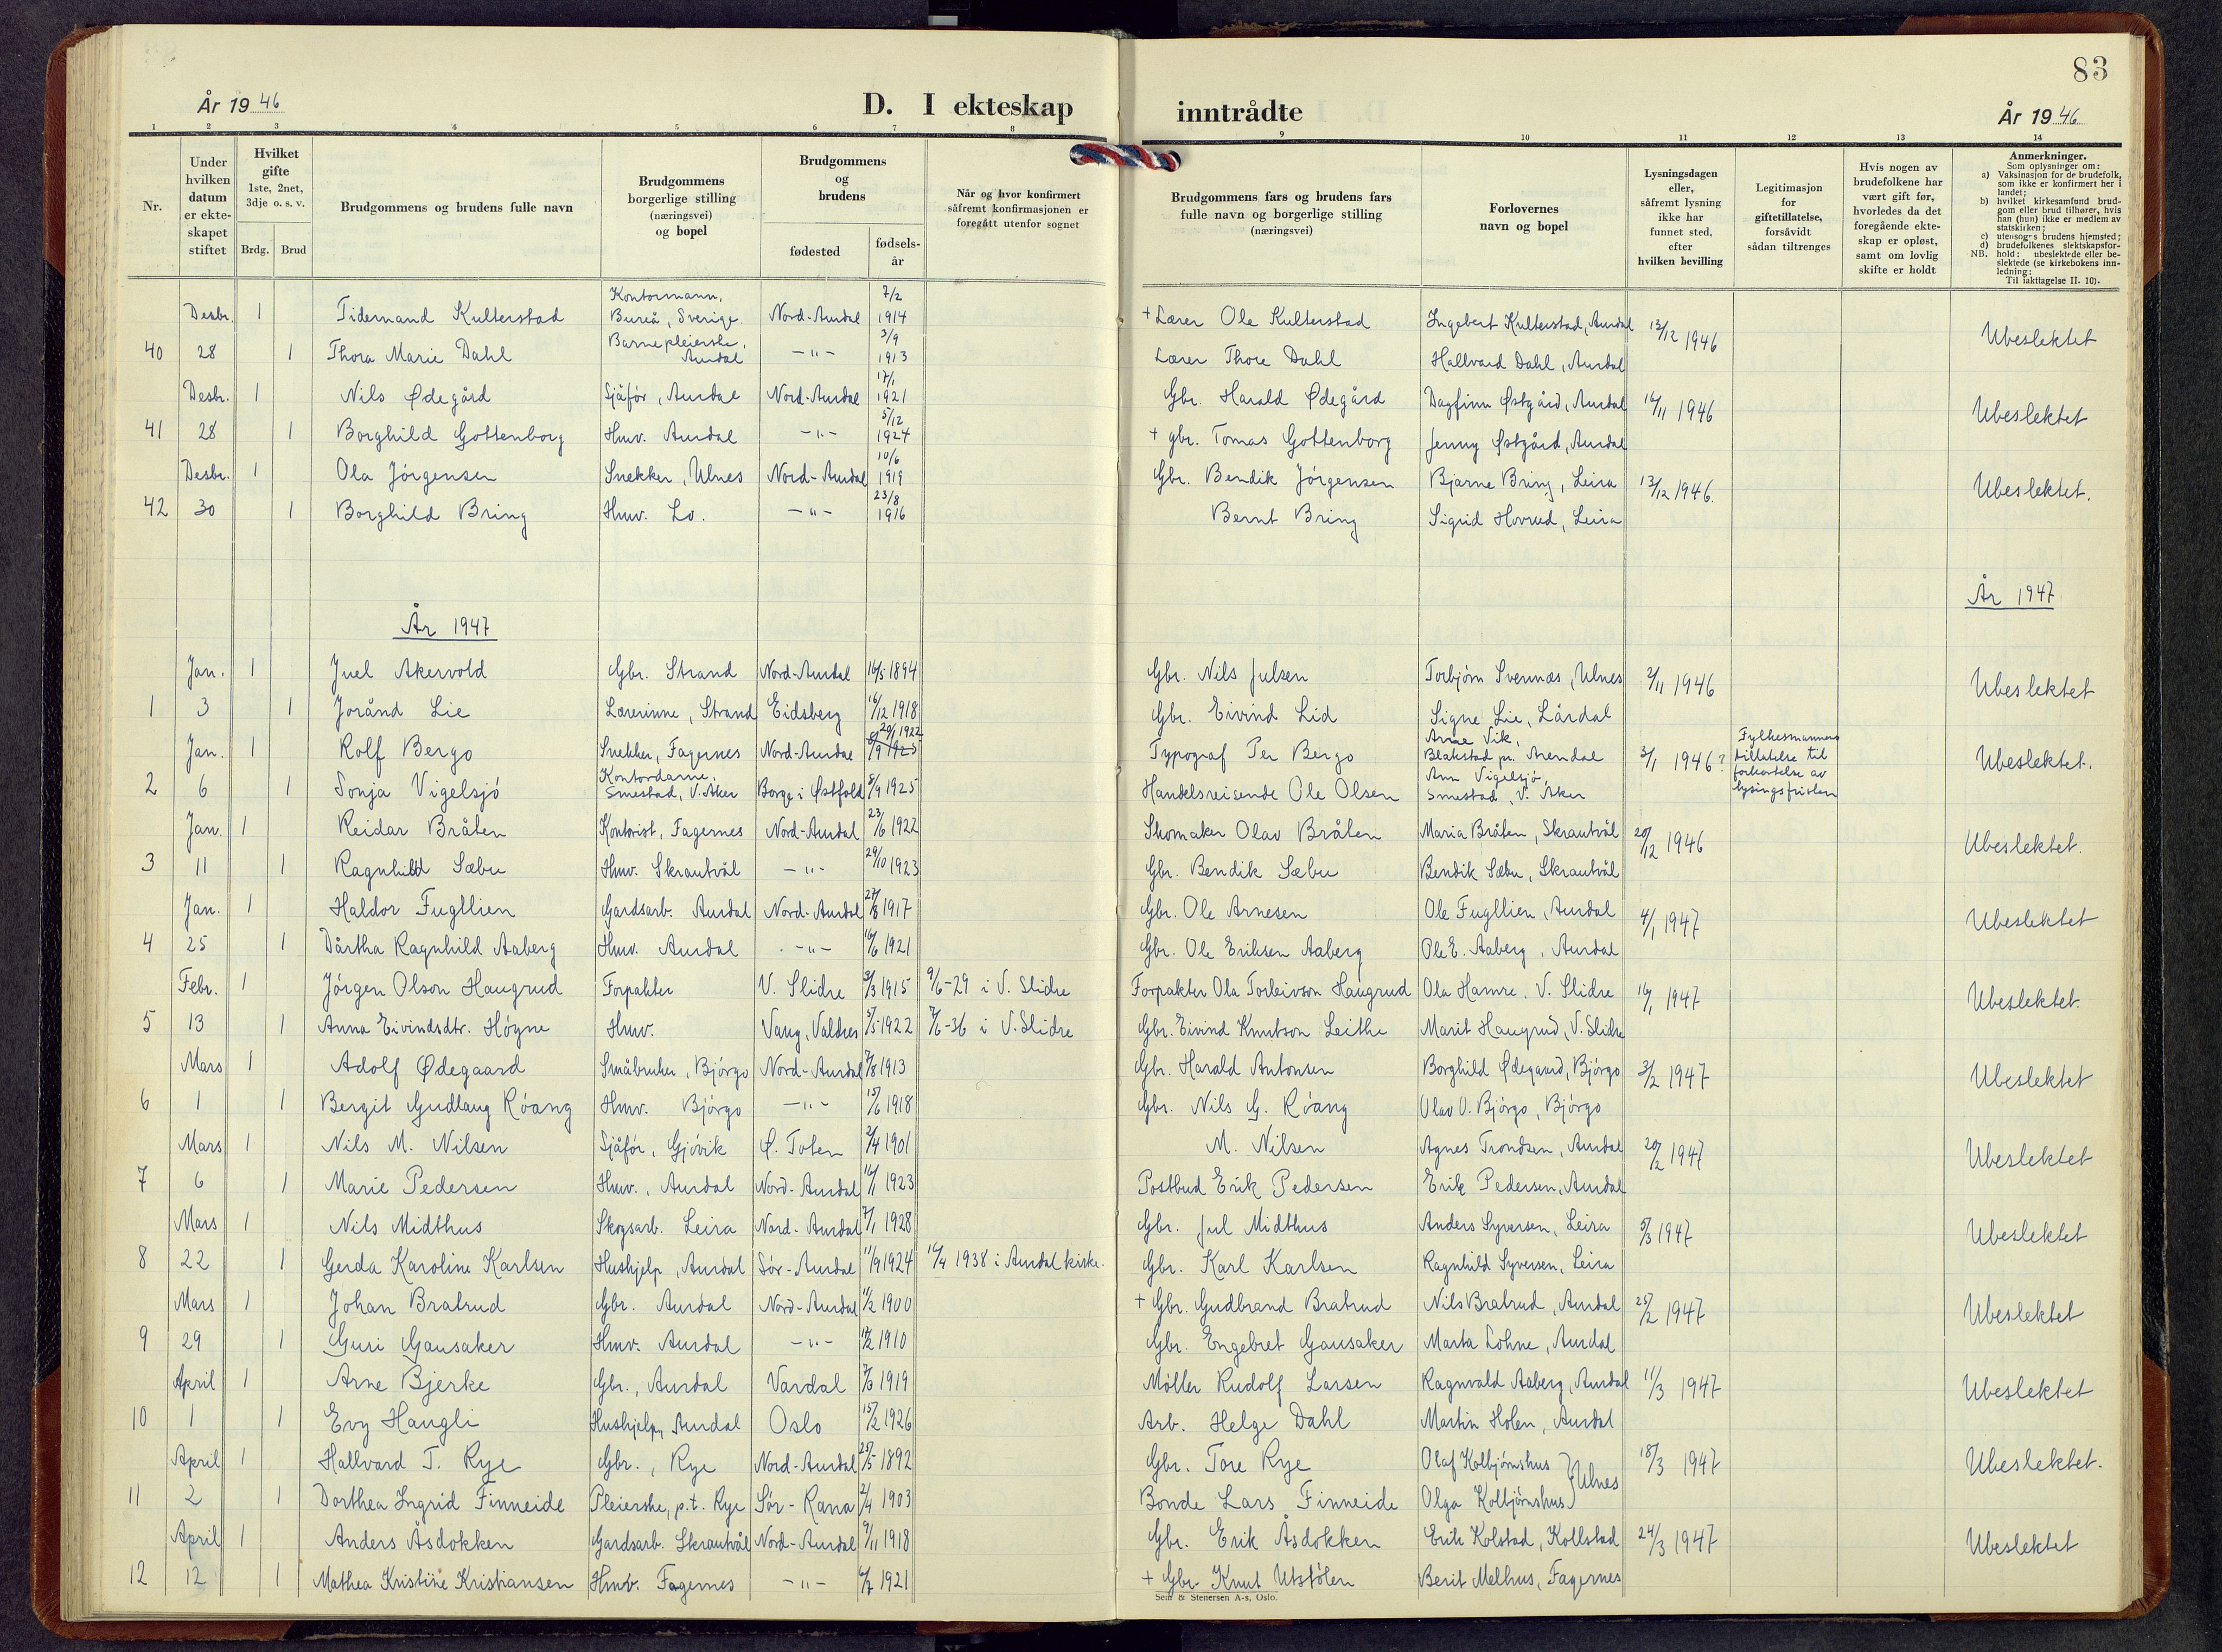 83
År 1946
D. I ekteskap
inntrådte
År 1946
1 2 3 4 5 6 7 8 9 10 11 12 13 14
Nr.
Under hvilken datum er ekteskapet stiftet
Hvilket gifte 1ste, 2net, 3dje o. s. v.
Brdg. Brud
Brudgommens og brudens fulle navn
Brudgommens borgerlige stilling (næringsvei) og bopel
Brudgommens og brudens
fødested
fødsels-år
Når og hvor konfirmert såfremt konfirmasjonen er foregått utenfor sognet
Brudgommens fars og brudens fars fulle navn og borgerlige stilling (næringsvei)
Forlovernes navn og bopel
Lysningsdagen eller, såfremt lysning ikke har funnet sted, efter hvilken bevilling
Legitimasjon for giftetillatelse, forsåvidt sådan tiltrenges
Hvis nogen av brudefolkene har vært gift før, hvorledes da det foregående ekteskap er opløst, samt om lovlig skifte er holdt
Anmerkninger.
Som oplysninger om:
a) Vaksinasjon for de brudefolk, som ikke er konfirmert her i landet;
b) hvilket kirkesamfund brudgom eller brud tilhører, hvis han (hun) ikke er medlem av statskirken;
c) utensogns brudens hjemsted;
d) brudefolkenes slektskapsforhold: ubeslektede eller beslektede (se kirkebokens innledning:
NB.
Til iakttagelse II. 10).
Desbr. 1 Tidemand Kulterstad Kontormann, Bureå, Sverige. Nord-Aurdal 7/2 1914 + Lærer Ole Kulterstad Ingebert Kulterstad, Aurdal 13/12 1946 Ubeslektet
40 28 1 Thora Marie Dahl Barnepleierske, Aurdal -"- 3/9 1913 Lærer Thore Dahl Hallvard Dahl, Aurdal
Desbr. 1 Nils Ødegård Sjåfør, Aurdal Nord-Aurdal 17/1 1921 Gbr. Harald Ødegård Dagfinn Østgård, Aurdal 16/11 1946 Ubeslektet
41 28 1 Borghild Gottenborg Hmv. Aurdal -"- 5/12 1924 + gbr. Tomas Gottenborg Jenny Østgård, Aurdal
Desbr. 1 Ola Jörgensen Snekker, Ulnes Nord-Aurdal 10/6 1919 Gbr. Bendik Jörgensen Bjarne Bring, Leira 13/12 1946. Ubeslektet.
42 30 1 Borghild Bring Hmv. Lo. -"- 23/8 1916 Bernt Bring Sigrid Hovrud, Leira
År 1947
År 1947
Jan. 1 Juel Akervold Gbr. Strand Nord-Aurdal 16/5 1894 Gbr. Nils Julsen Torbjörn Svennæs, Ulnes 2/11 1946 Ubeslektet
1 3 1 Jorånd Lie Lærerinne, Strand Eidsberg 16/12 1918 Gbr. Eivind Lid Signe Lie, Lårdal
Jan. 1 Rolf Bergo Snekker, Fagernes Nord-Aurdal 29/1 1922 Typograf Per Bergo Arne Vik, Blakstad pr. Arendal 3/1 1946? Fylkesmannens tillatelse til forkortelse av lysingsfristen Ubeslektet.
2 6 1 Sonja Vigelsjö Kontordame, Smestad, V. Aker Borge i Østfold 8/9 1925 Handelsreisende Ole Olsen Ann Vigelsjö, Smestad, V. Aker
Jan. 1 Reidar Bråten Kontorist, Fagernes Nord-Aurdal 23/6 1922 Skomaker Olav Bråten Maria Bråten, Skrautvål 20/12 1946 Ubeslektet.
3 11 1 Ragnhild Sæbu Hmv. Skrautvål -"- 29/10 1923 Gbr. Bendik Sæbu Bendik Sæbu, Skrautvål
Jan. 1 Haldor Fugllien Gardsarb. Aurdal Nord-Aurdal 27/8 1917 Gbr. Ole Arnesen Ole Fugllien, Aurdal 4/1 1947 Ubeslektet
4 25 1 Dårtha Ragnhild Aaberg Hmv. Aurdal -"- 16/6 1921 Gbr. Ole Eriksen Aaberg Ole E. Aaberg, Aurdal
Febr. 1 Jörgen Olson Haugrud Forpakter V. Slidre 3/3 1915 9/6-29 i V. Slidre Forpakter Ola Torleivson Haugrud Ola Hamre, V. Slidre 16/1 1947 Ubeslektet.
5 13 1 Anna Eivindsdtr. Högne Hmv. Vang, Valdres 5/5 1922 7/6-36 i V. Slidre Gbr. Eivind Knutson Leithe Marit Haugrud, V. Slidre
Mars 1 Adolf Ødegaard Småbruker, Björgo Nord-Aurdal 7/8 1913 Gbr. Harald Antonsen Borghild Ødegaard, Björgo 3/2 1947 Ubeslektet
6 1 1 Bergit Gudlaug Róang Hmv. Björgo -"- 15/6 1918 Gbr. Nils G. Róang Olav O. Björgo, Björgo
Mars 1 Nils M. Nilsen Sjåför, Gjövik Ø. Toten 2/4 1901 M. Nilsen Agnes Trondsen, Aurdal 20/2 1947 Ubeslektet
7 6 1 Marie Pedersen Hmv., Aurdal Nord-Aurdal 16/1 1923 Postbud Erik Pedersen Erik Pedersen, Aurdal
Mars 1 Nils Midthus Skogsarb. Leira Nord-Aurdal 7/1 1928 Gbr. Jul Midthus Anders Syversen, Leira 5/3 1947 Ubeslektet
8 22 1 Gerda Karoline Karlsen Hushjelp, Aurdal Sör-Aurdal 11/9 1924 1938 i Aurdal kirke. Gbr. Karl Karlsen Ragnhild Syversen, Leira
Mars 1 Johan Bratrud Gbr. Aurdal Nord-Aurdal 11/2 1900 + Gbr. Gudbrand Bratrud Nils Bratrud, Aurdal 25/2 1947 Ubeslektet
9 29 1 Guri Gausaker Hmv. Aurdal -"- 1910 Gbr. Engebret Gausaker Marta Lohne, Aurdal
April 1 Arne Bjerke Gbr., Aurdal Vardal 1919 Möller Rudolf Larsen Ragnvald Aaberg, Aurdal 11/3 1947 Ubeslektet
10 1 1 Evy Haugli Hushjelp, Aurdal Oslo 15/2 1926 Arb. Helge Dahl Martin Holen, Aurdal
April 1 Hallvard T. Rye Gbr., Rye Nord-Aurdal 25/5 1892 Gbr. Tore Rye Olaf Kolbjörnshus } Ulnes 18/3 1947 Ubeslektet.
11 2 1 Dorthea Ingrid Finneide Pleierske, p.t. Rye Sör-Rana 2/4 1903 Bonde Lars Finneide Olga Kolbjörnshus
April 1 Anders Åsdokken Gardsarb. Skrautvål Nord-Aurdal 9/11 1918 Gbr. Erik Åsdokken Erik Kolstad, Kollstad 24/3 1947 Ubeslektet
12 12 1 Mathea Kristine Kristiansen Hmv. Fagernes -"- 1921 + Gbr. Knut Utstölen Berit Melhus, Fagernes
Sem & Stenersen A-s, Oslo.